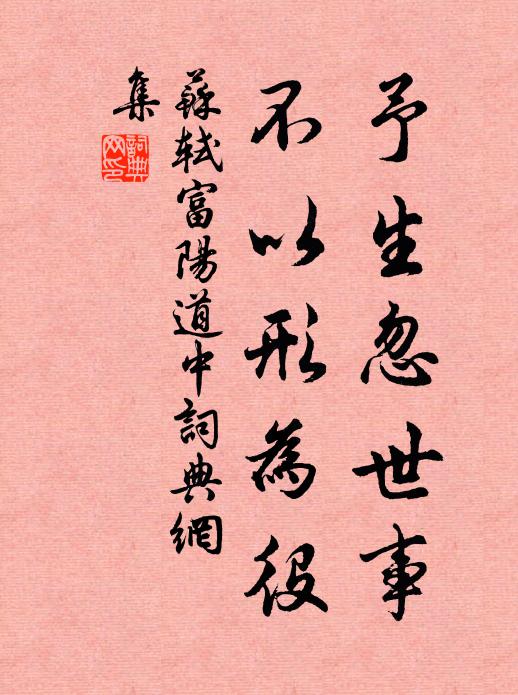 予生忽世事
不以形為役
蘇軾富陽道中詞典網
集
詞典網印